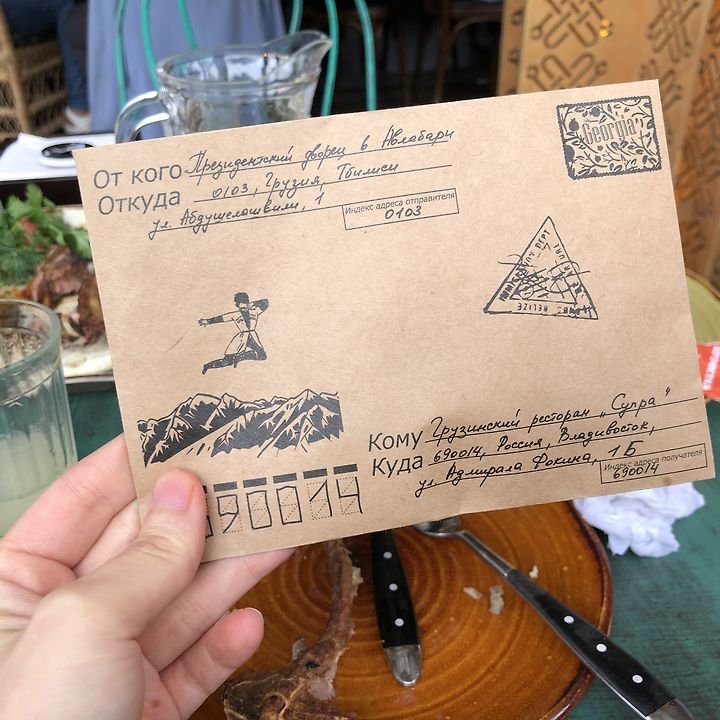 От кого Президентский дворец в Авлабари
Откуда 0103, Грузия, Тбилиси
ул. Абдушелашвили, 1
Индекс адреса отправителя
0103
Georgia
Кому Грузинский ресторан „Супра"
Куда 690014, Россия, Владивосток,
ул Адмирала Фокина, 1Б
Индекс адреса получателя
690014
90014